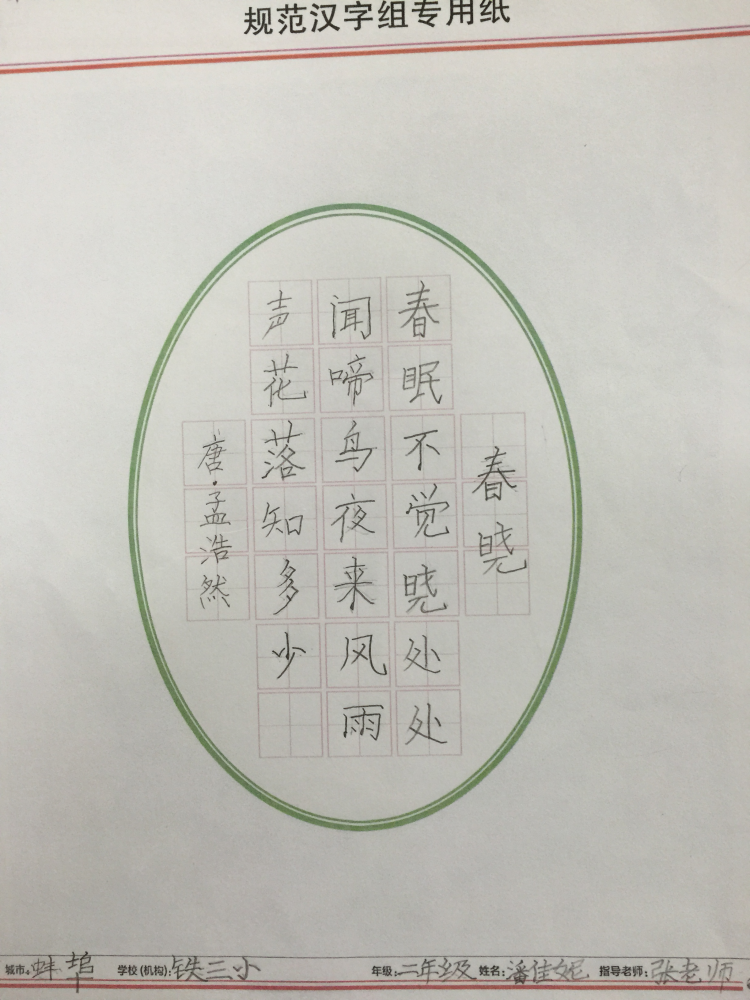 规范汉字组专用纸
春晓
春眠不觉晓处处
闻啼鸟夜来风雨
声花落知多少
唐·孟浩然
城市:蚌埠 学校(机构):铁三小 年级:二年级 姓名:潘佳妮 指导老师:张老师